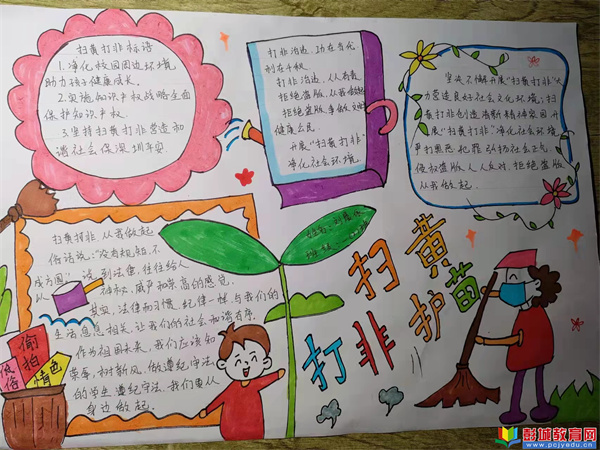 扫黄打非标语
1.净化校园周边环境
助力孩子健康成长。
2.实施知识产权战略全面
保护知识产权
3.坚持扫黄打非营造和
谐社会保深圳平安
打非治边,功在当代
利在千秋
打非治边,人人有责
拒绝盗版,从我做起
拒绝盗版,争做文明
健康公民
开展"扫黄打非"
净化社会环境
坚决不懈开展"扫黄打非"大
力营造良好社会文化环境;扫
黄打非创造清新精神家园开
展"扫黄打非"净化社会环境
严打黑恶犯罪弘扬社会正气
侵权盗版人人反对,拒绝盗版
从我做起
扫黄打非,从我做起
俗话说:"没有规矩,不
成方圆",说到法律,往往给人
以神秘、威严和崇高的感觉
其实,法律而习惯、纪律一样与我们的
生活息息相关,让我们的社会和谐有序
作为祖国未来,我们应该知
荣辱,树新风,做遵纪守法
的学生遵纪守法,我们要从
身边做起。
姓名:
班级:
扫黄
打非
护苗
偷拍
低俗
情色
彭城教育网
www.pcjyedu.cn